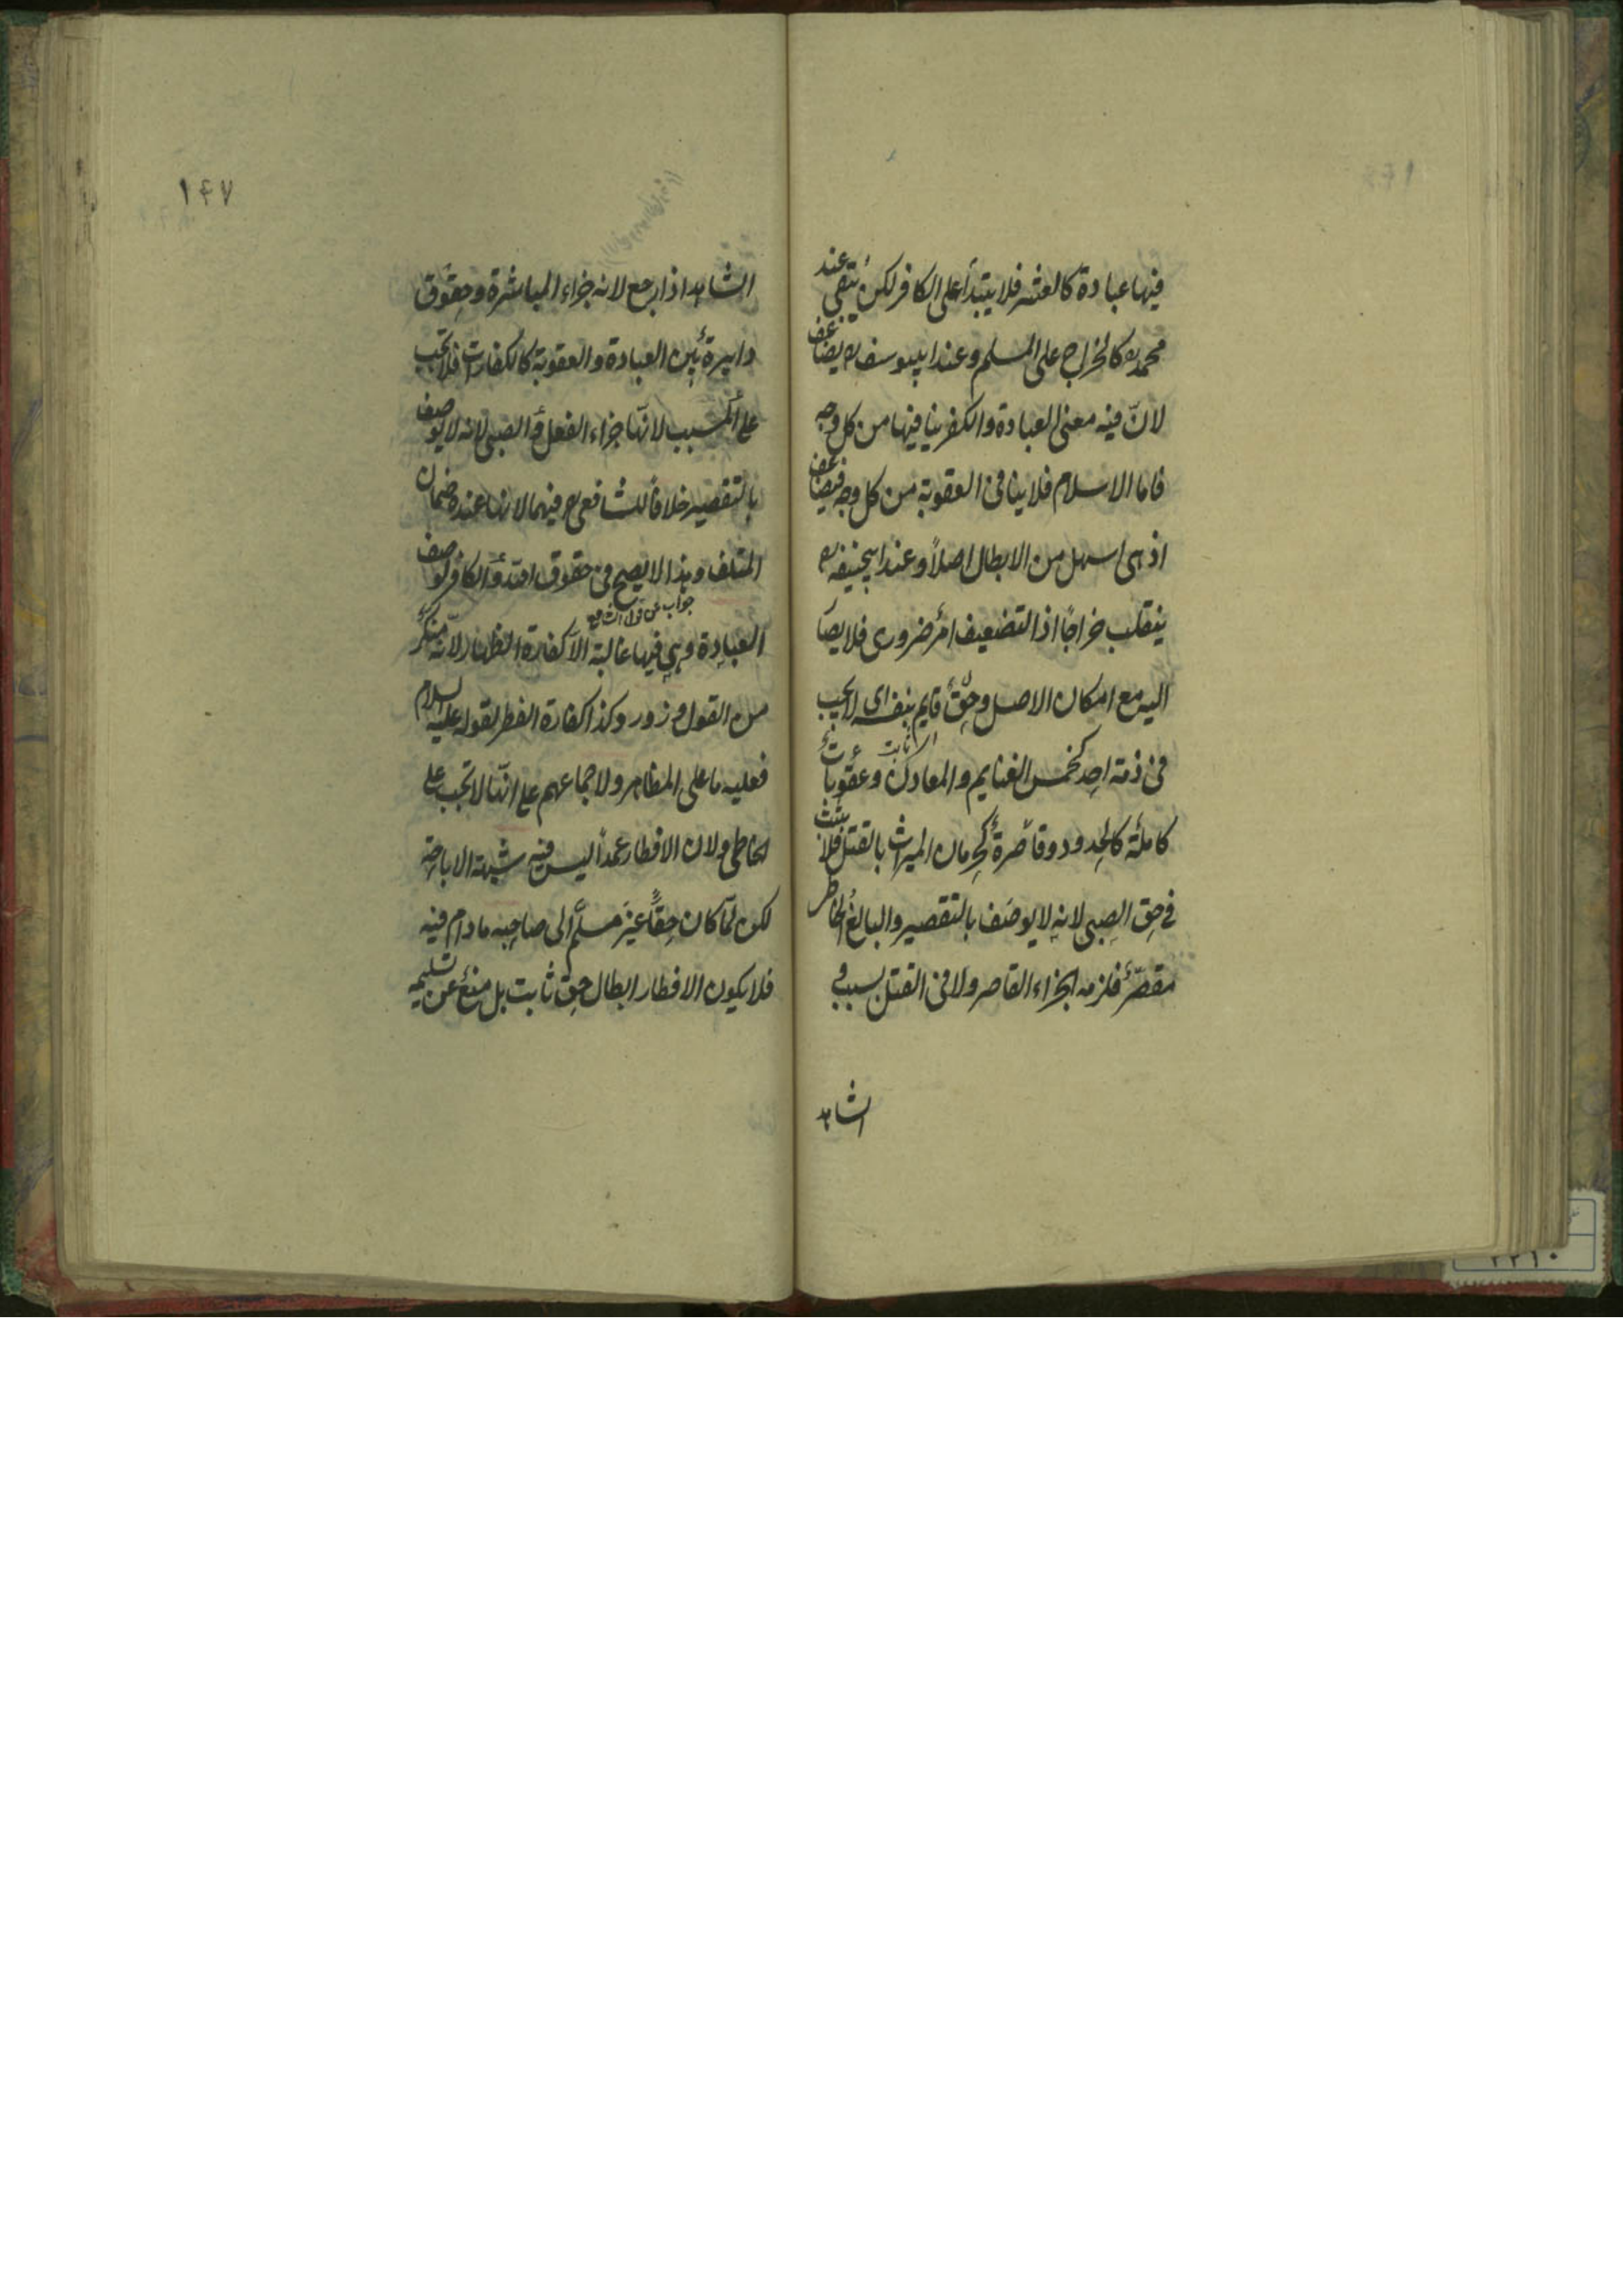 فيها عبادة كالعشر فلا يبتدأ على الكافر لكن يبقى عند
محمد رح كالخراج على المسلم وعند ابييوسف رح يضاعف
لانّ فيه معنى العبادة والكفر ينافيها من كل وجه
فاما الاسلام فلا ينافى العقوبة من كل وجه فيضاعف
اذ هى اسهل من الابطال اصلاً وعند ابيحنيفه رح
ينقلب خراجًا اذ التضعيف امر ضرورى فلا يصار
اليه مع امكان الاصل وحق قايم بنفسه اى لا يجب
فى ذمة احد كخمس الغنايم والمعادن وعقوبات
كاملة كالحدود وقاصرة كحرمان الميراث بالقتل فلا يثبت
فى حق الصبى لانه لا يوصف بالتقصير والبالغ الخاطى
مقصّر فلزمه الجزاء القاصر ولا فى القتل بسبب و
الشاهد
١٤٧
الشاهد اذا رجع لانه جزاء المباشرة وحقوق
دايرة بين العبادة والعقوبة كالكفارات فلا تجب
على المسبب لانّها جزاء الفعل والصبى لانه لا يوصف
بالتقصير خلافا للشافعى رح فيهما لانها عنده ضمان
المتلف وهذا لا يصح فى حقوق الله والكافر لوصف
جواب عن قول الشافعى
العبادة وهى فيها غالبة الا كفارة الظهار لانه منكر
من القول وزور وكذا كفارة الفطر لقوله عليه السلام
فعليه ما على المظاهر ولاجماعهم على انّها لا تجب على
الخاطى ولان الافطار عمداً ليس فيه شبهة الاباحة
لكن لمّا كان حقًّا غير مسلّم الى صاحبه ما دام فيه
فلا يكون الافطار ابطال حق ثابت بل منع عن تسليمه